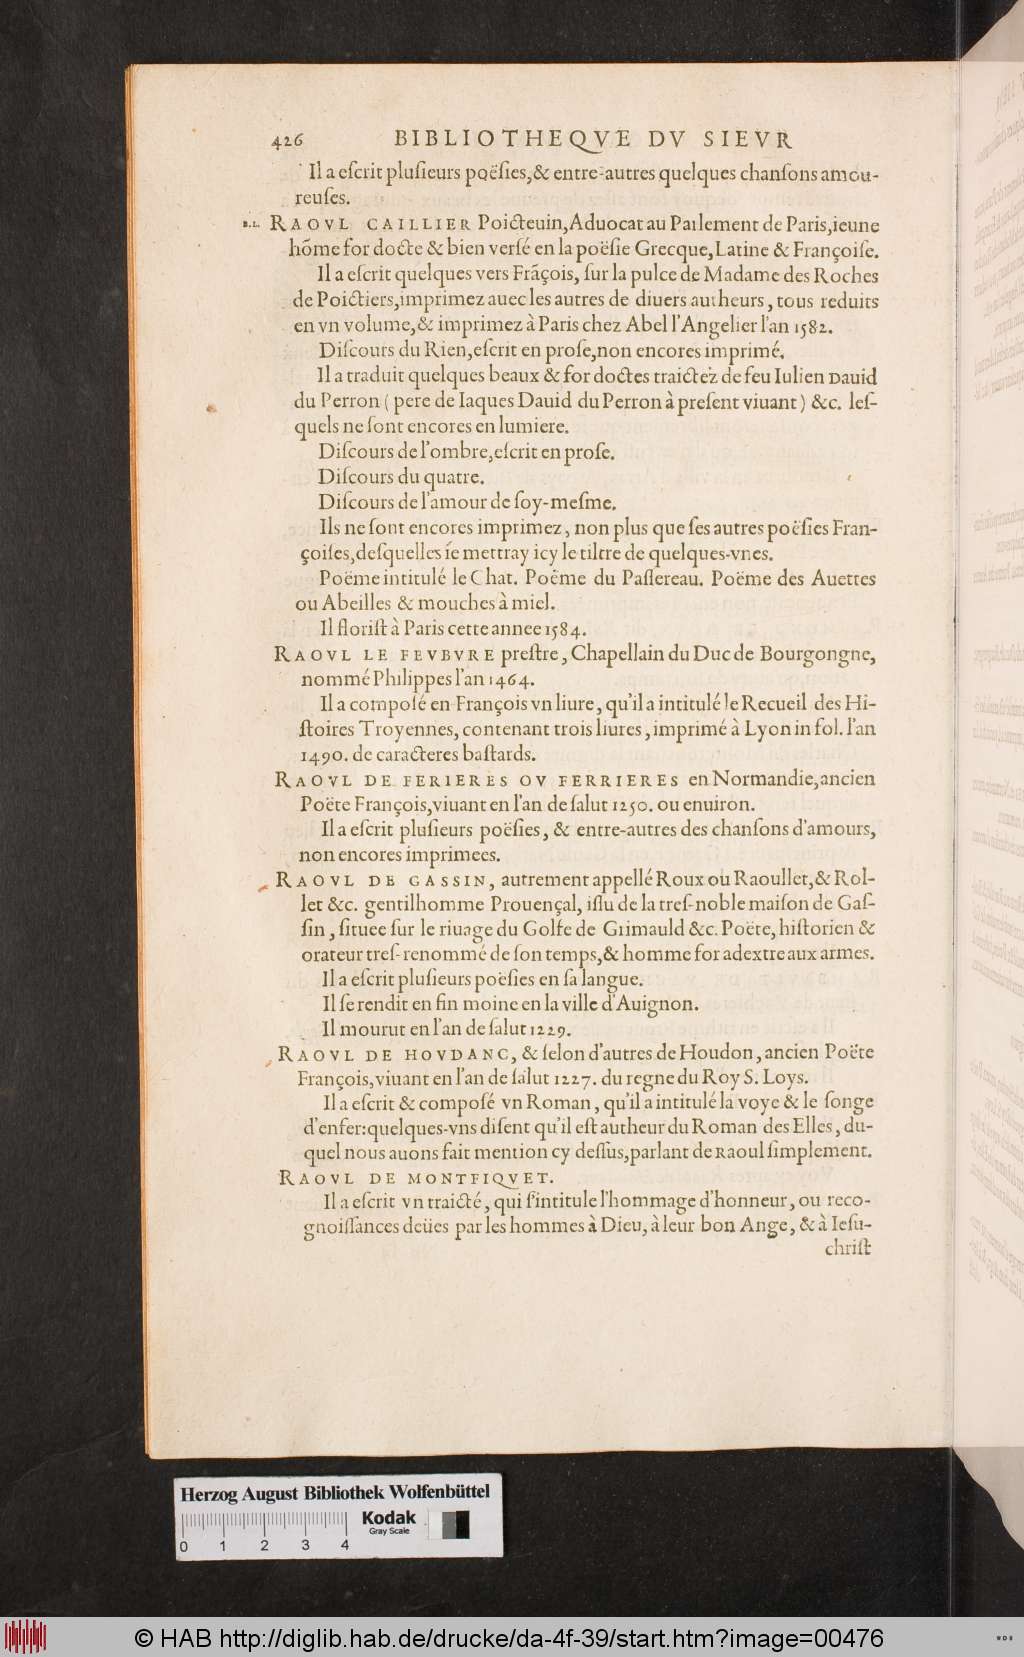 426 BIBLIOTHEQVE DV SIEVR
Il a eſcrit pluſieurs poëſies,& entre-autres quelques chanſons amou-
reuſes.
B.L. RAOVL CAILLIER Poicteuin, Aduocat au Parlement de Paris,ieune
hõme for docte & bien verſé en la poëſie Grecque, Latine & Françoiſe.
Il a eſcrit quelques vers Frãçois, ſur la pulce de Madame des Roches
de Poictiers,imprimez auec les autres de diuers autheurs, tous reduits
en vn volume,& imprimez à Paris chez Abel l'Angelier l'an 1582.
Diſcours du Rien,eſcrit en proſe,non encores imprimé.
Il a traduit quelques beaux & for doctes traictez de feu Iulien Dauid
du Perron ( pere de Iaques Dauid du Perron à preſent viuant ) &c. leſ-
quels ne ſont encores en lumiere.
Diſcours de l'ombre,eſcrit en proſe.
Diſcours du quatre.
Diſcours de l'amour de ſoy-meſme.
Ils ne ſont encores imprimez, non plus que ſes autres poëſies Fran-
çoiſes,deſquelles ie mettray icy le tiltre de quelques-vnes.
Poëme intitulé le Chat. Poëme du Paſſereau. Poëme des Auettes
ou Abeilles & mouches à miel.
Il floriſt à Paris cette annee 1584.
RAOVL LE FEVBVRE preſtre, Chapellain du Duc de Bourgongne,
nommé Philippes l'an 1464.
Il a compoſé en François vn liure, qu'il a intitulé le Recueil des Hi-
ſtoires Troyennes, contenant trois liures, imprimé à Lyon in fol. l'an
1490. de caracteres baſtards.
RAOVL DE FERIERES OV FERRIERES en Normandie,ancien
Poëte François,viuant en l'an de ſalut 1250. ou enuiron.
Il a eſcrit pluſieurs poëſies, & entre-autres des chanſons d'amours,
non encores imprimees.
RAOVL DE GASSIN, autrement appellé Roux ou Raoullet,& Rol-
let &c. gentilhomme Prouençal, iſſu de la treſ-noble maiſon de Gaſ-
ſin, ſituee ſur le riuage du Golfe de Grimauld &c. Poëte, hiſtorien &
orateur treſ-renommé de ſon temps,& homme for adextre aux armes.
Il a eſcrit pluſieurs poëſies en ſa langue.
Il ſe rendit en fin moine en la ville d'Auignon.
Il mourut en l'an de ſalut 1229.
RAOVL DE HOVDANC, & ſelon d'autres de Houdon, ancien Poëte
François,viuant en l'an de ſalut 1227. du regne du Roy S. Loys.
Il a eſcrit & compoſé vn Roman, qu'il a intitulé la voye & le ſonge
d'enfer:quelques-vns diſent qu'il eſt autheur du Roman des Elles, du-
quel nous auons fait mention cy deſſus,parlant de Raoul ſimplement.
RAOVL DE MONTFIQVET.
Il a eſcrit vn traicté, qui ſ'intitule l'hommage d'honneur, ou reco-
gnoiſſances deües par les hommes à Dieu, à leur bon Ange, & à Ieſu-
chriſt
Herzog August Bibliothek Wolfenbüttel
Kodak
Gray Scale
0 1 2 3 4
© HAB http://diglib.hab.de/drucke/da-4f-39/start.htm?image=00476